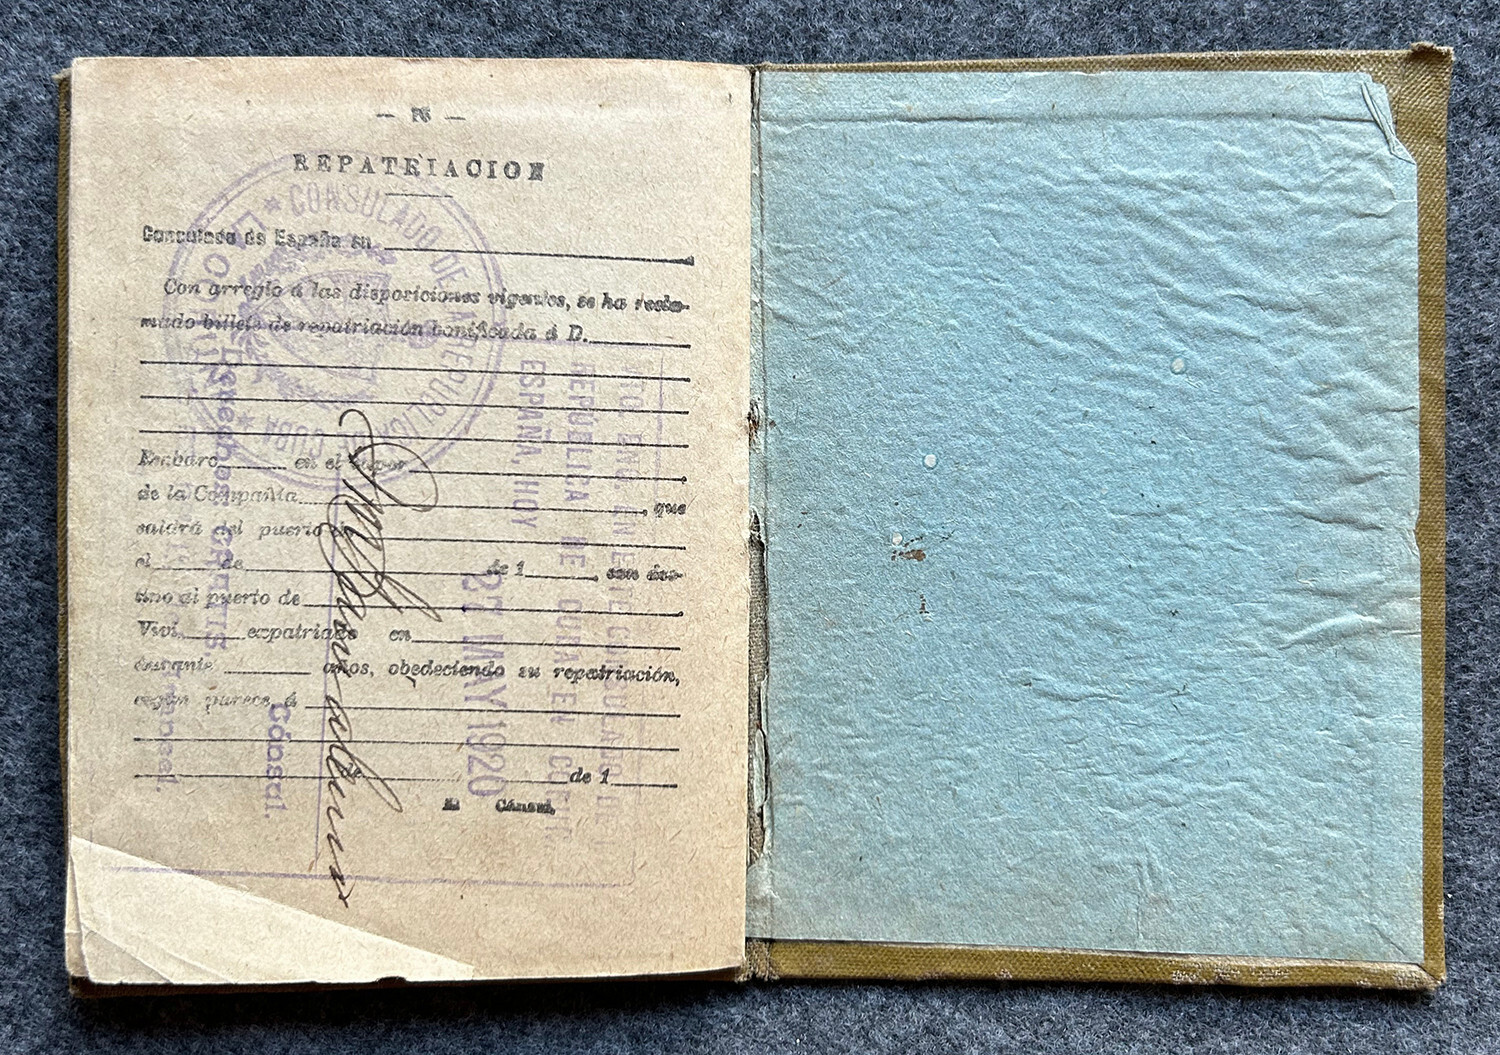 REPATRIACION
Consulado de España en
Con arreglo á las disposiciones vigentes, se ha recla-
mado billete de repatriación bonificada á D.
Embarc en el vapor
de la Compañía , que
saldrá del puerto de
el de de 1 , con des-
tino al puerto de
Vivi expatriado en
durante años, obedeciendo su repatriación,
según parece, á
de de 1
El Cónsul,
* CONSULADO DE LA REPUBLICA DE CUBA *
LA CORUÑA
VTO. BNO. EN ESTE CONSULADO DE LA
REPUBLICA DE CUBA EN CORUÑA
ESPAÑA, HOY
27 MAY 1920
Cónsul.
Derechos: GRATIS.
Arancel.